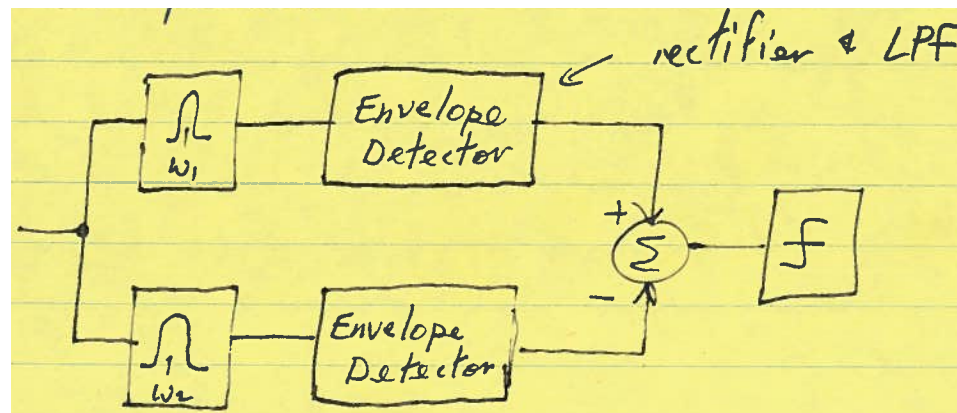 rectifier & LPF
Envelope
Detector
ω₁
+
Σ
-
Envelope
Detector
ω₂